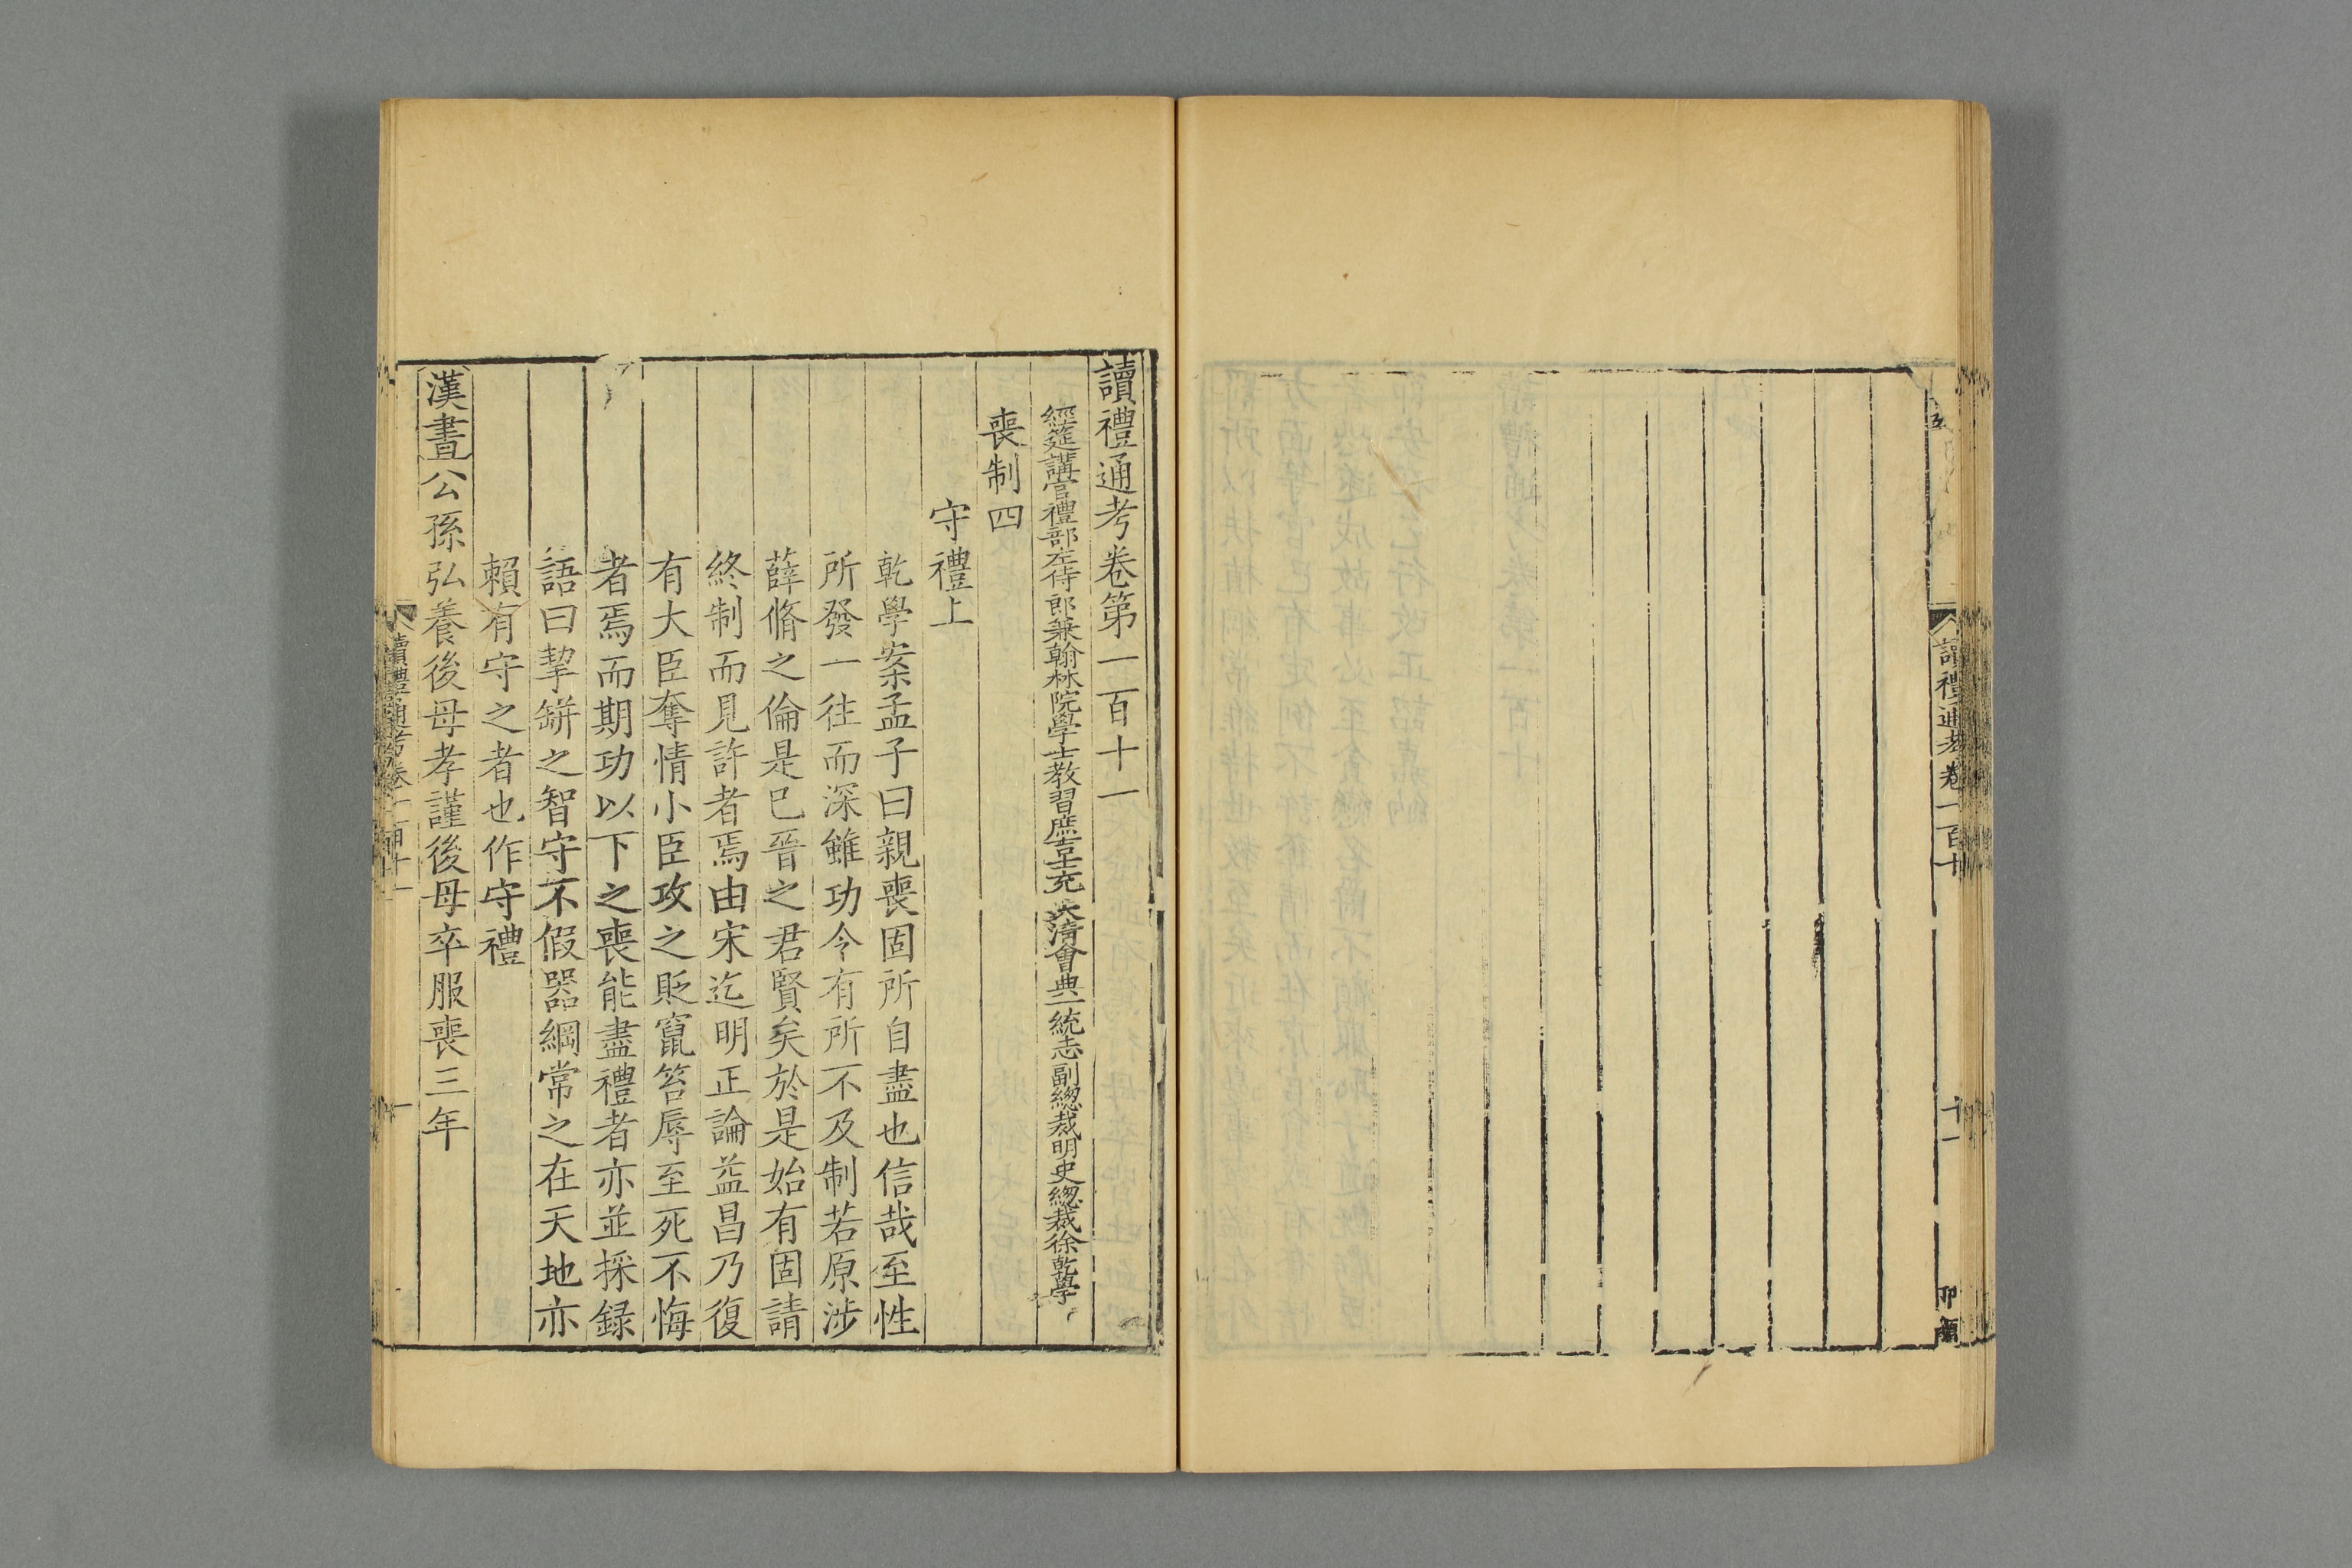 讀禮通考卷一百十
十一
讀禮通考卷第一百十一
經筵講官禮部左侍郎兼翰林院學士教習庶吉士充 大清會典一統志副總裁明史總裁徐乾學
喪制四
守禮上
乾學案孟子曰親喪固所自盡也信哉至性
所發一往而深雖功令有所不及制若原涉
薛脩之倫是巳晉之君賢矣於是始有固請
終制而見許者焉由宋迄明正論益昌乃復
有大臣奪情小臣攻之貶竄笞辱至死不悔
者焉而期功以下之喪能盡禮者亦並採録
語曰挈缾之智守不假器綱常之在天地亦
賴有守之者也作守禮
漢書公孫弘養後母孝謹後母卒服喪三年
讀禮通考卷一百十一
一